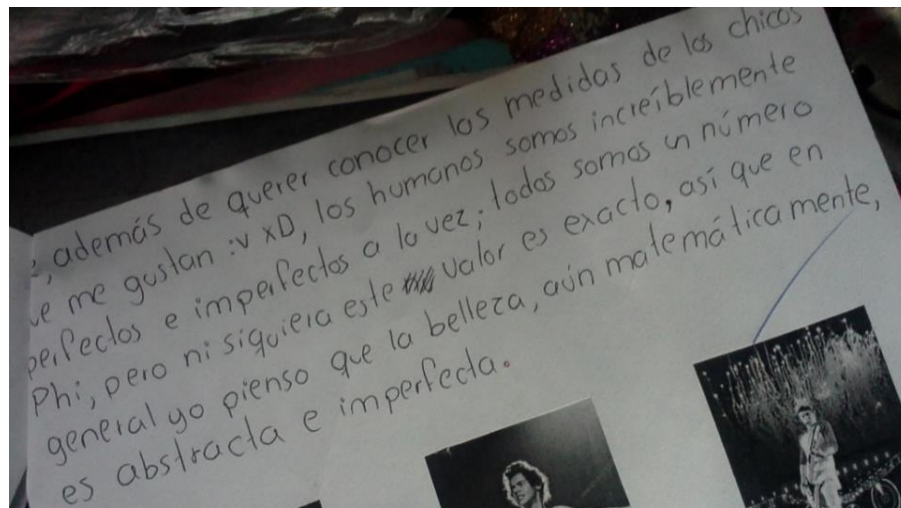 , además de querer conocer las medidas de los chicos
me gustan :v xD, los humanos somos increíblemente
perfectos e imperfectos a la vez; todos somos un número
Phi, pero ni siquiera este valor es exacto, así que en
general yo pienso que la belleza, aún matemáticamente,
es abstracta e imperfecta.